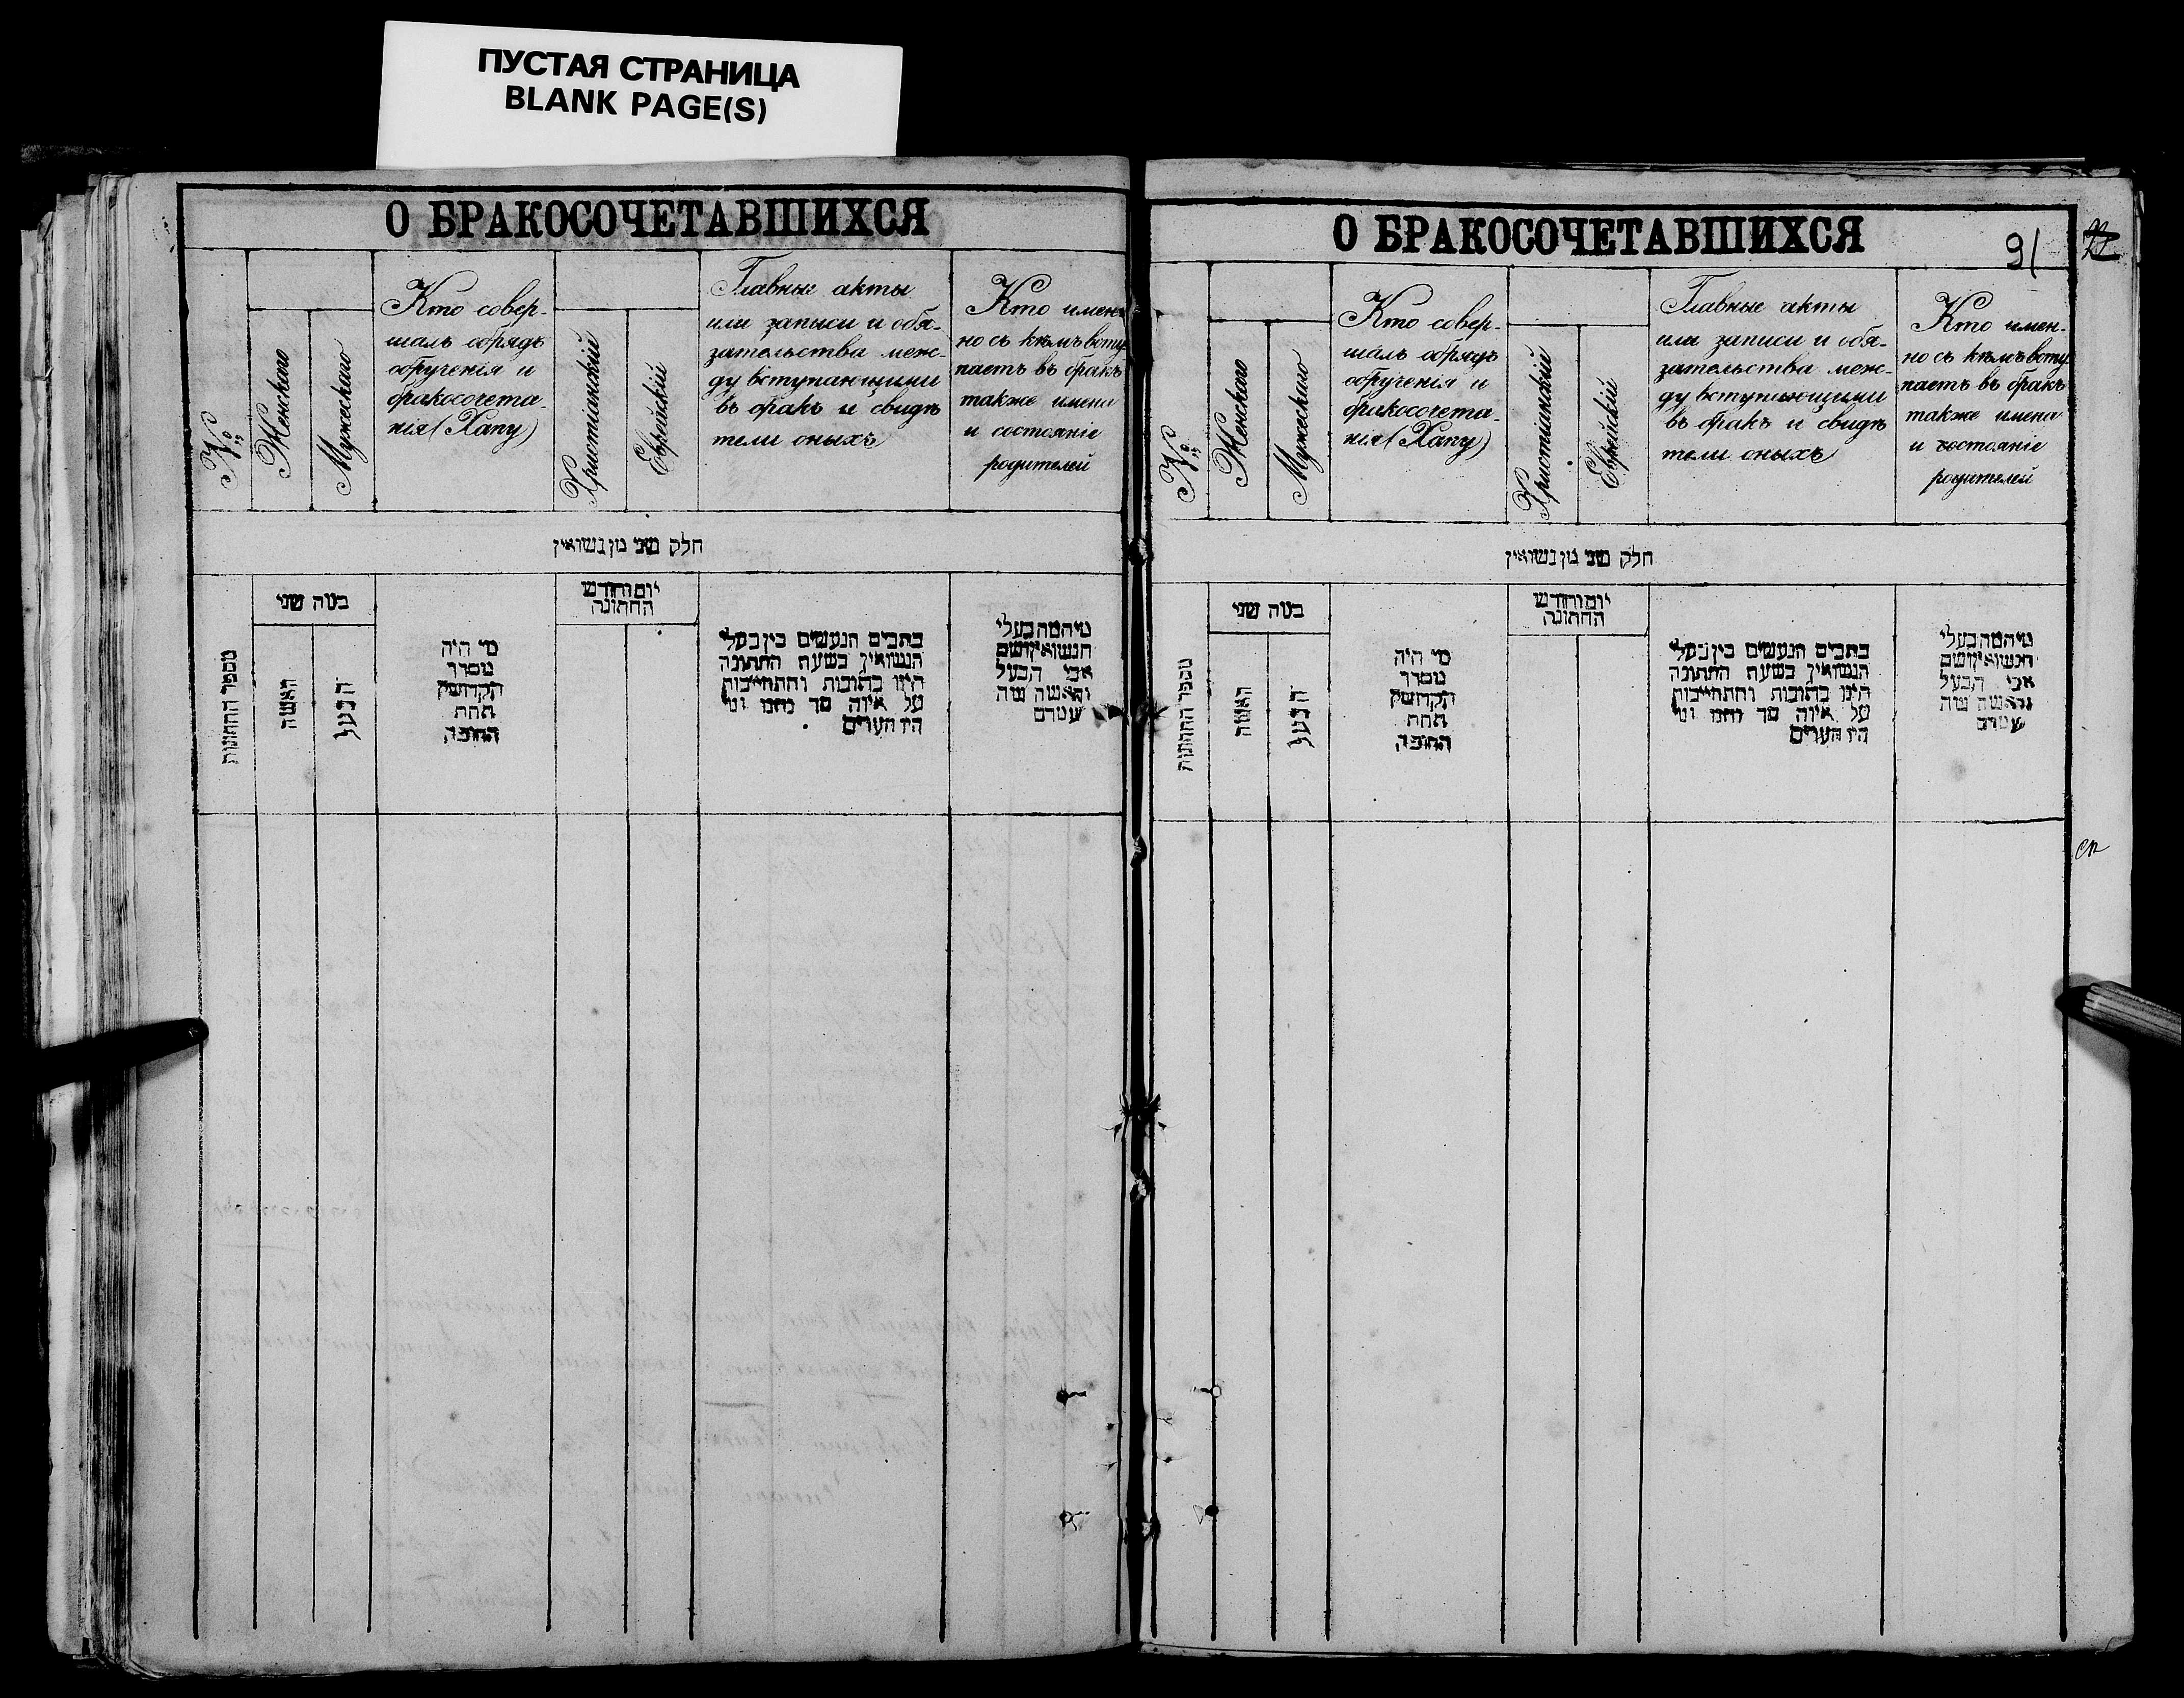 ПУСТАЯ СТРАНИЦА
BLANK PAGE(S)
О БРАКОСОЧЕТАВШИХСЯ
№
Женскаго
Мужескаго
Кто совер-
шалъ обрядъ
обрученія и
бракосочета-
нія (Хапу)
Христіанскій
Еврейскій
Главные акты
или записи и обя-
зательства меж-
ду вступающими
въ бракъ и свидѣ
тели оныхъ
Кто имен
но съ кѣмъ всту
паетъ въ бракъ
также имена
и состояніе
родителей
חלק שני מן נשואין
מספר החתונות
במה שני
האשה
הבעל
מי היה
מסדר
הקדושין
תחת
החופה
יום וחודש
החתונה
כתבים הנעשים בין בעלי
הנשואין בשעת החתונה
היינו כתובות והתחייבות
על איזה סך נתנו ומי
היו העדים
מי המה בעלי
הנשואין ושם
אבי הבעל
והאשה ומה
עמדם
О БРАКОСОЧЕТАВШИХСЯ
91
№
Женскаго
Мужескаго
Кто совер-
шалъ обрядъ
обрученія и
бракосочета-
нія (Хапу)
Христіанскій
Еврейскій
Главные акты
или записи и обя-
зательства меж-
ду вступающими
въ бракъ и свидѣ
тели оныхъ
Кто имен-
но съ кѣмъ всту
паетъ въ бракъ
также имена
и состояніе
родителей
חלק שני מן נשואין
מספר החתונות
במה שני
האשה
הבעל
מי היה
מסדר
הקדושין
תחת
החופה
יום וחודש
החתונה
כתבים הנעשים בין בעלי
הנשואין בשעת החתונה
היינו כתובות והתחייבות
על איזה סך נתנו ומי
היו העדים
מי המה בעלי
הנשואין ושם
אבי הבעל
והאשה ומה
עמדם